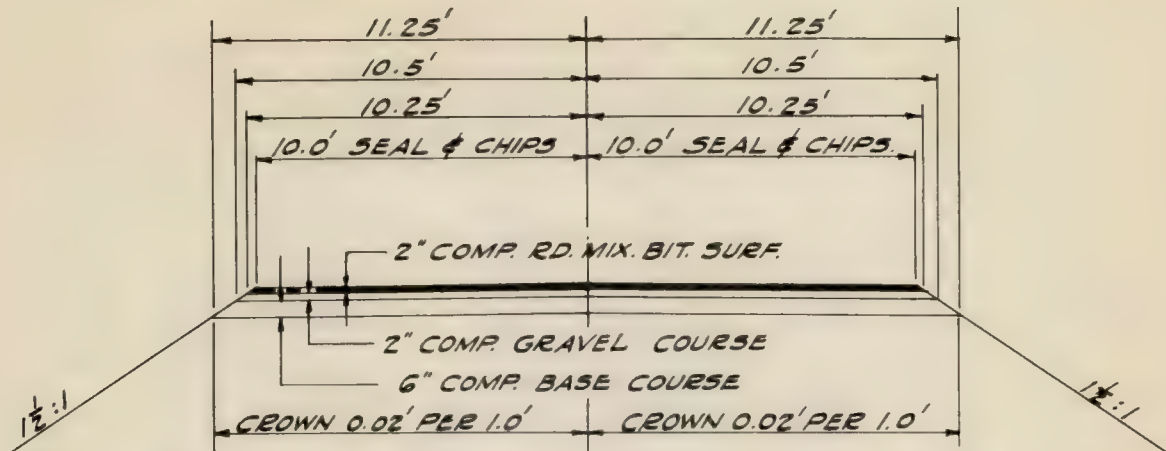 11.25' 11.25'
10.5' 10.5'
10.25' 10.25'
10.0' SEAL & CHIPS 10.0' SEAL & CHIPS.
2" COMP. RD. MIX. BIT. SURF.
2" COMP. GRAVEL COURSE
6" COMP. BASE COURSE
1½:1 1½:1
CROWN 0.02' PER 1.0' CROWN 0.02' PER 1.0'